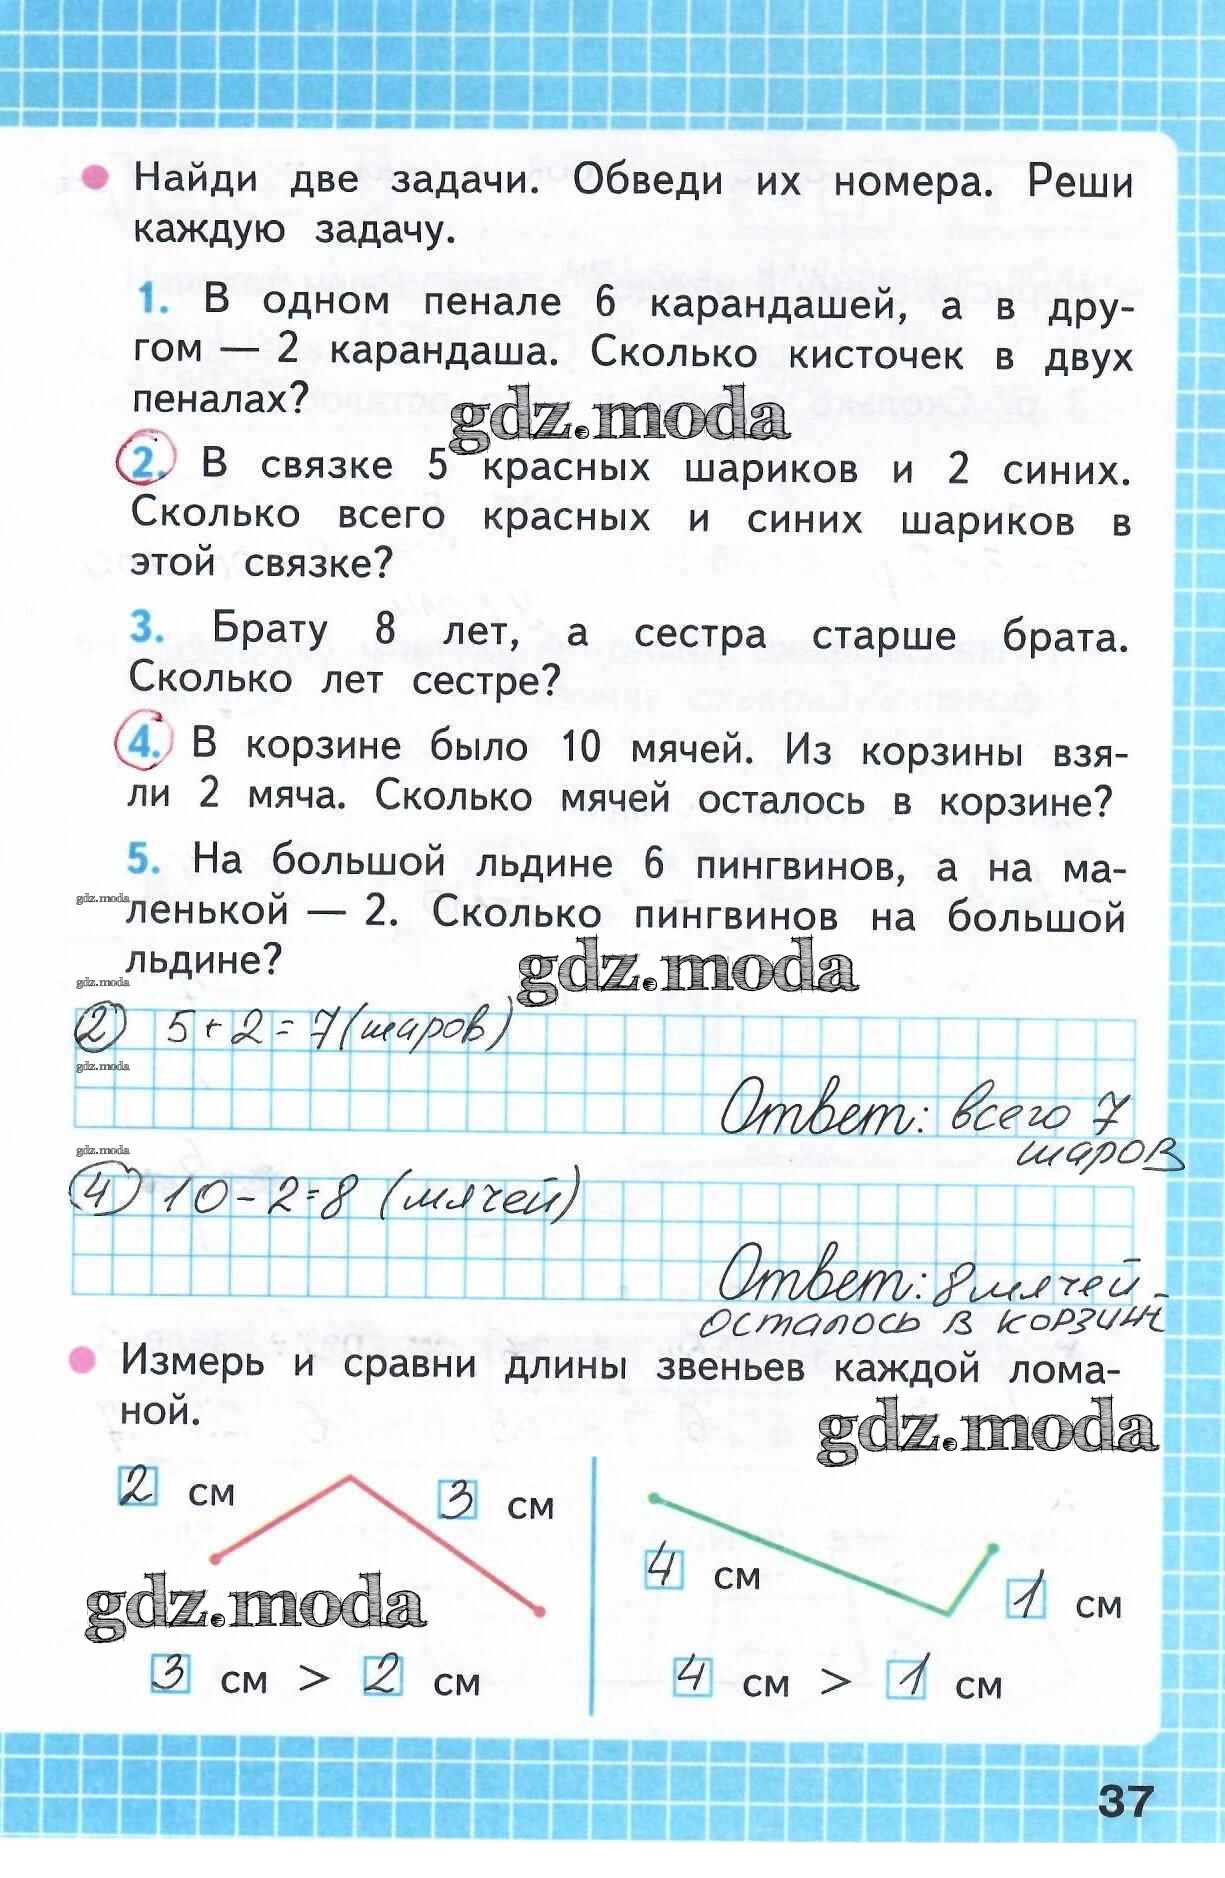 Найди две задачи. Обведи их номера. Реши
каждую задачу.
1. В одном пенале 6 карандашей, а в дру-
гом — 2 карандаша. Сколько кисточек в двух
пеналах?
gdz.moda
2. В связке 5 красных шариков и 2 синих.
Сколько всего красных и синих шариков в
этой связке?
3. Брату 8 лет, а сестра старше брата.
Сколько лет сестре?
4. В корзине было 10 мячей. Из корзины взя-
ли 2 мяча. Сколько мячей осталось в корзине?
5. На большой льдине 6 пингвинов, а на ма-
gdz.moda
ленькой — 2. Сколько пингвинов на большой
льдине?
gdz.moda
gdz.moda
2 5+2=7 (шаров)
gdz.moda
Ответ: всего 7
шаров
gdz.moda
4 10-2=8 (мячей)
Ответ: 8 мячей
осталось в корзин
Измерь и сравни длины звеньев каждой лома-
ной.
gdz.moda
2 см 3 см
4 см 1 см
gdz.moda
3 см > 2 см
4 см > 1 см
37